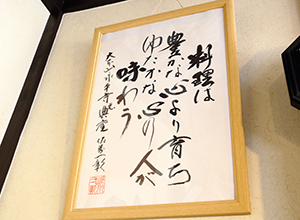 料理は
豊かな心より育ち
ゆたかな心の人が
味わう
大本山永平寺